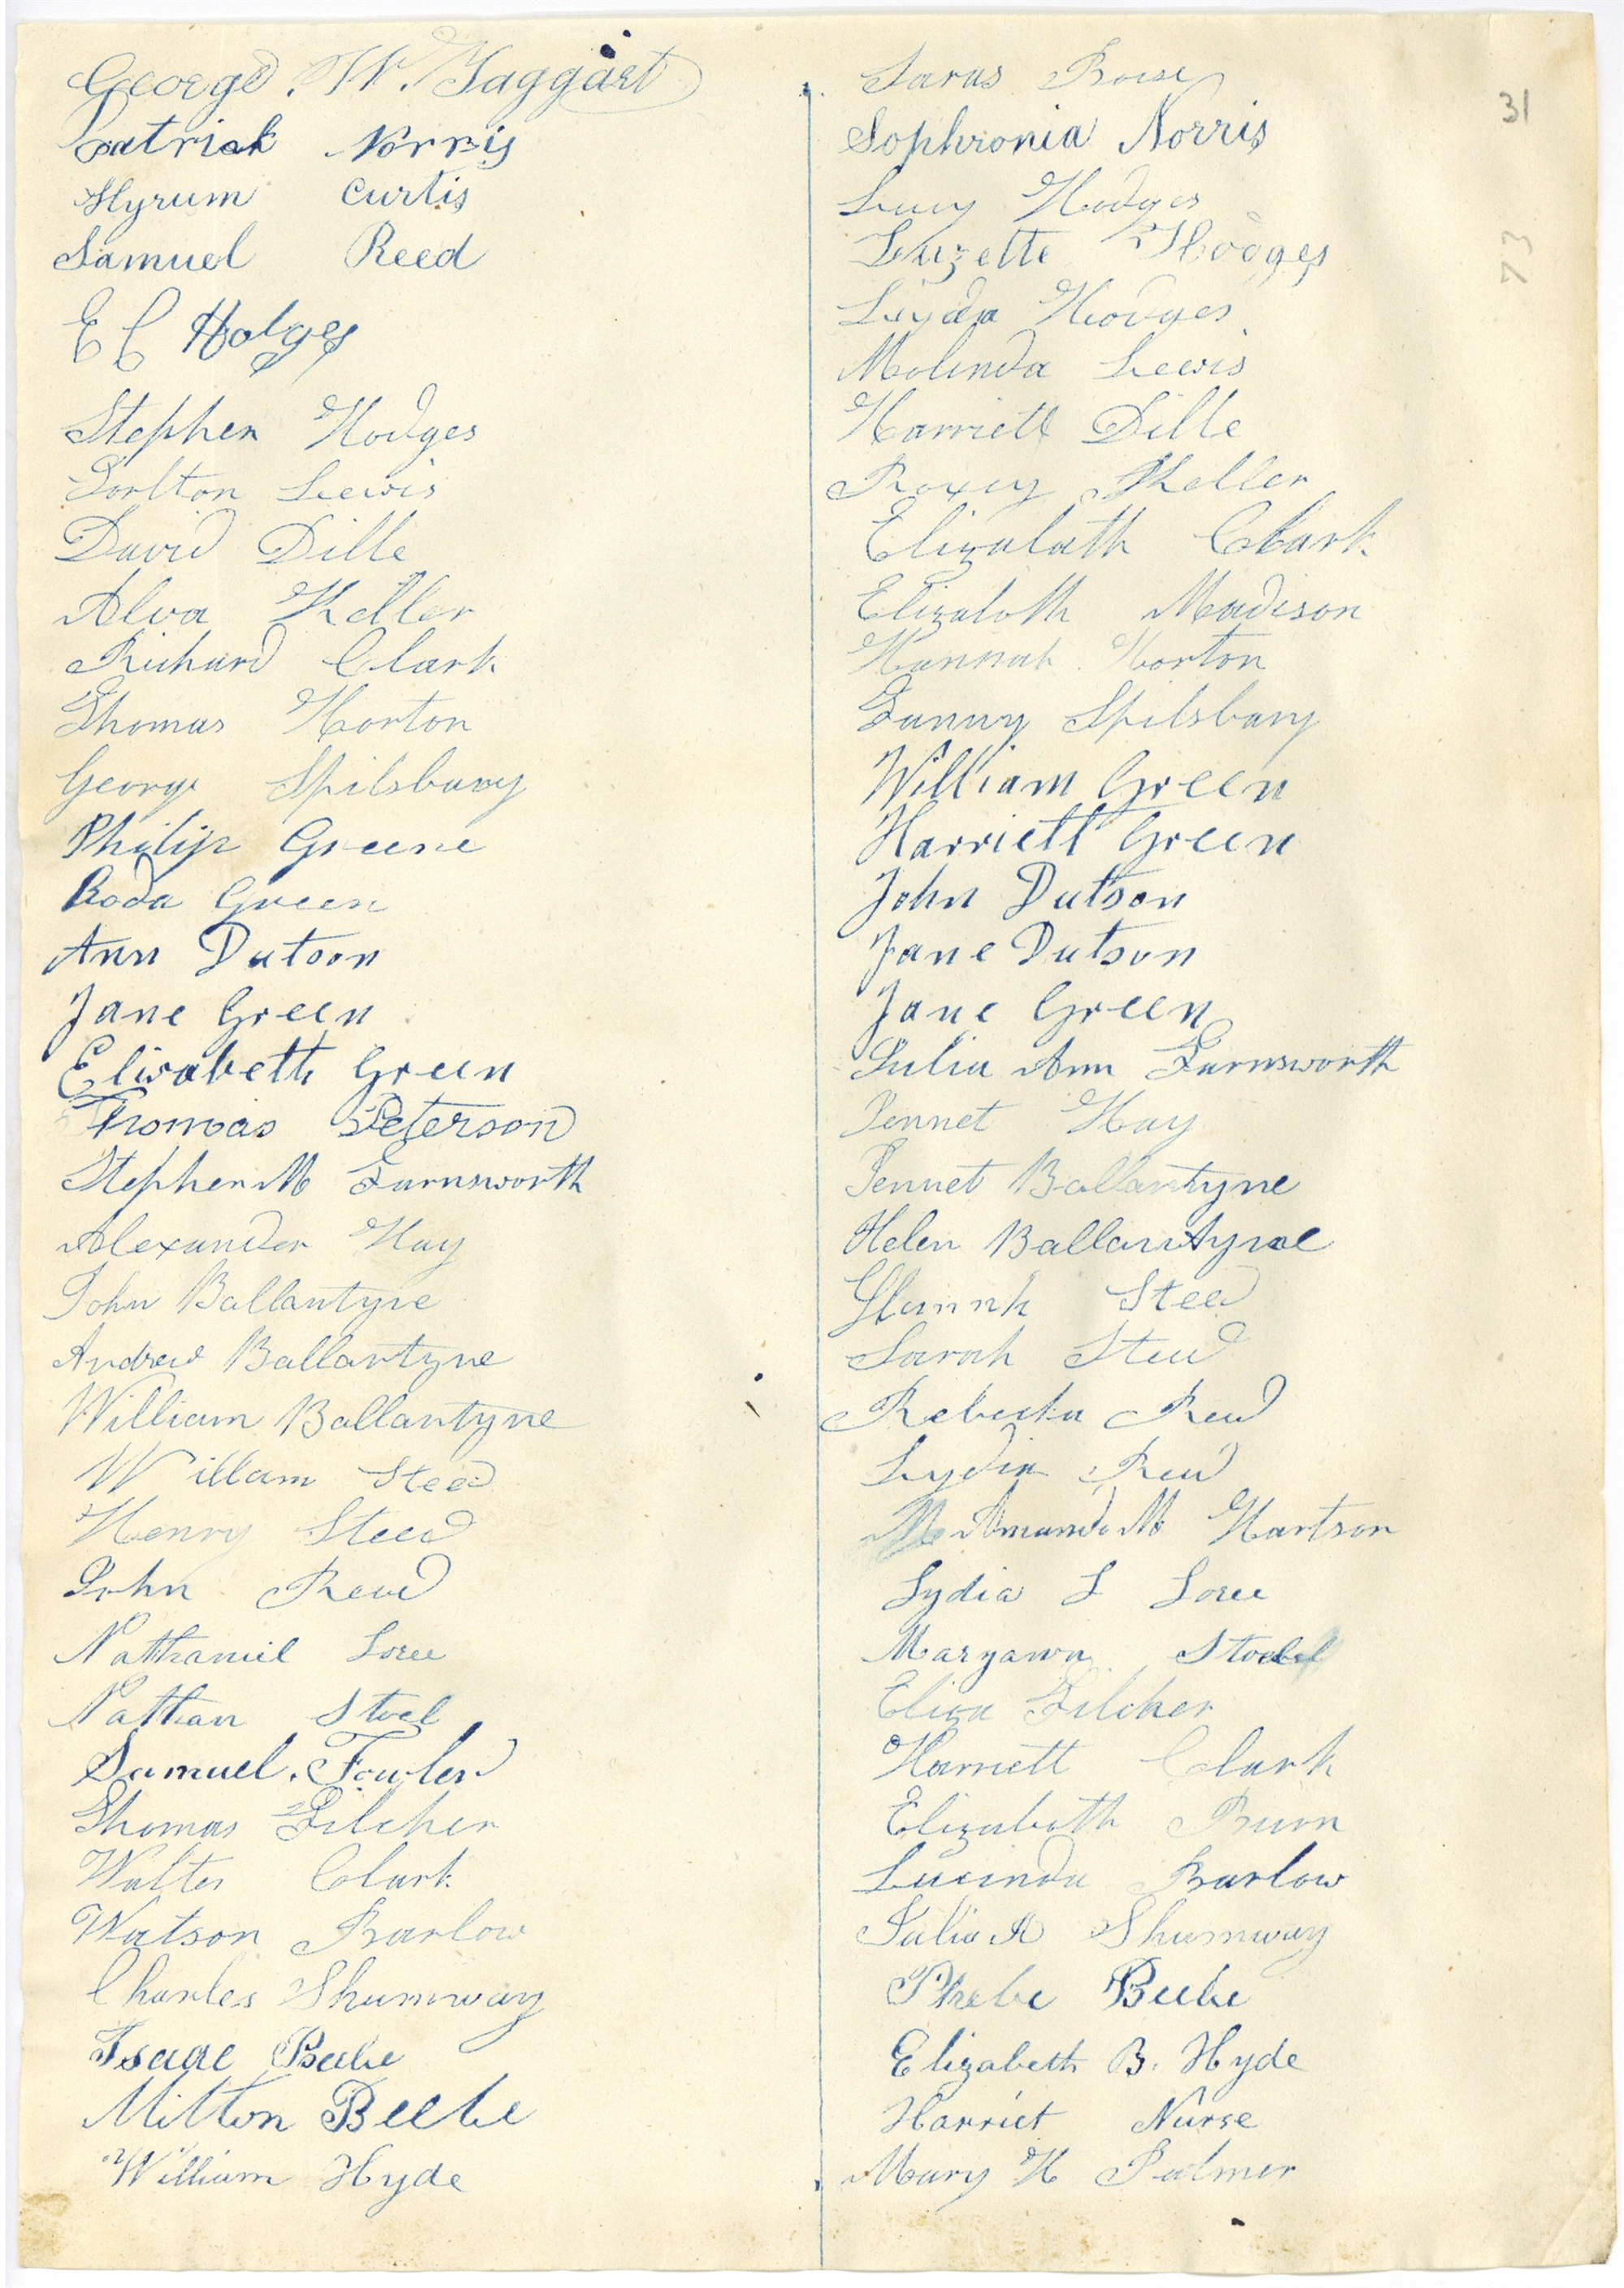 George. W. Taggart
Patrick Norris
Hyrum Curtis
Samuel Reed
E C Hodges
Stephen Hodges
Lewis
David Dille
Alva Keller
Richard Clark
Thomas Horton
George Spilsbury
Philip Greene
Roda Green
Ann Dutson
Jane Green
Elizabeth Green
Thomas Peterson
Stephen M Farnsworth
Alexander Hay
John Ballantyne
Andrew Ballantyne
William Ballantyne
Willam Steed
Henry Steed
John Read
Nathaniel Loree
Nathan Stoel
Samuel. Fowler
Thomas Filcher
Walter Clark
Watson Barlow
Charles Shumway
Isaac Beebe
Milton Beebe
William Hyde
31
73
Sophronia Norris
Lucy Hodges
Luzette Hodges
Lyda Hodges
Molinda Lewis
Harriett Dille
Roxey Keller
Elizabath Clark
Elizaboth Madison
Hannah Horton
Fanny Spilsbury
William Green
Harriett Green
John Dutson
Jane Dutson
Jane Green
Julia Ann Farnsworth
Jennet Hay
Jennet Ballantyne
Helen Ballantyne
Steed
Sarah Steed
Read
Lydia Read
Amanda M Hartson
Lydia L Loree
Maryann
Eliza Filcher
Harriett Clark
Elizabeth
Lucinda Barlow
Julia A Shumway
Phebe Beebe
Elizabeth B. Hyde
Harriet Nurse
Mary H Palmer